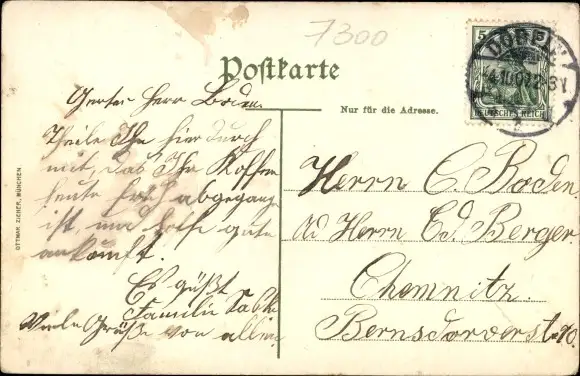 7300
Postkarte
Nur für die Adresse.
5
DEUTSCHES REICH
Geehrter Herr Boden.
Theile Ihn hier durch
mit, das Ihr Koffer
heute früh abgegang
ist, und hoffe gute
ankunft.
Es grüßt
Familie
Viele Grüße von allen
OTTMAR ZIEHER, MÜNCHEN
Herrn C. Boden.
Ad Herrn Ed. Berger.
Chemnitz.
Bernsdorferst